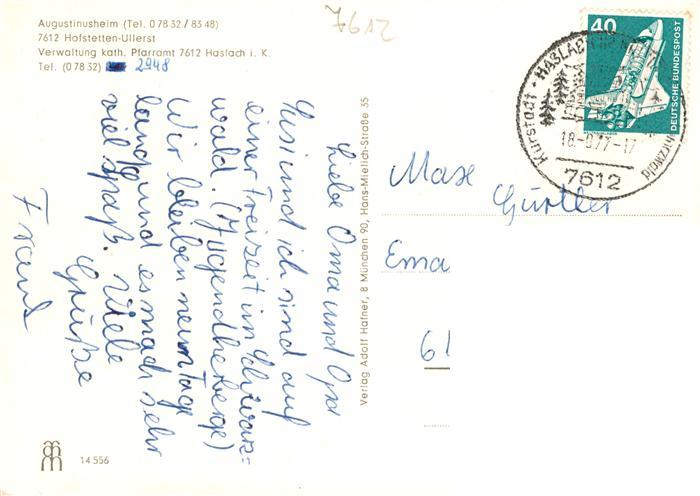 Augustinusheim (Tel. 0 78 32 / 83 48)
7612 Hofstetten-Ullerst
Verwaltung kath. Pfarramt 7612 Haslach i. K.
Tel. (0 78 32) 2948
7612
Liebe Oma und Opa
Susi und ich sind auf
einer Freizeit im Schwarz=
wald. (Jugendherberge)
Wir bleiben neun Tage
lang und es mach sehr
viel Spaß. Viele
Grüße
Frank
Verlag Adolf Hafner, 8 München 90, Hans-Mielich-Straße 35
40
DEUTSCHE BUNDESPOST
Kurstadt · HASLACH
Schwarzwald
18.-8.77-17
7612
Max
Gürtler
Ema
61
14 556